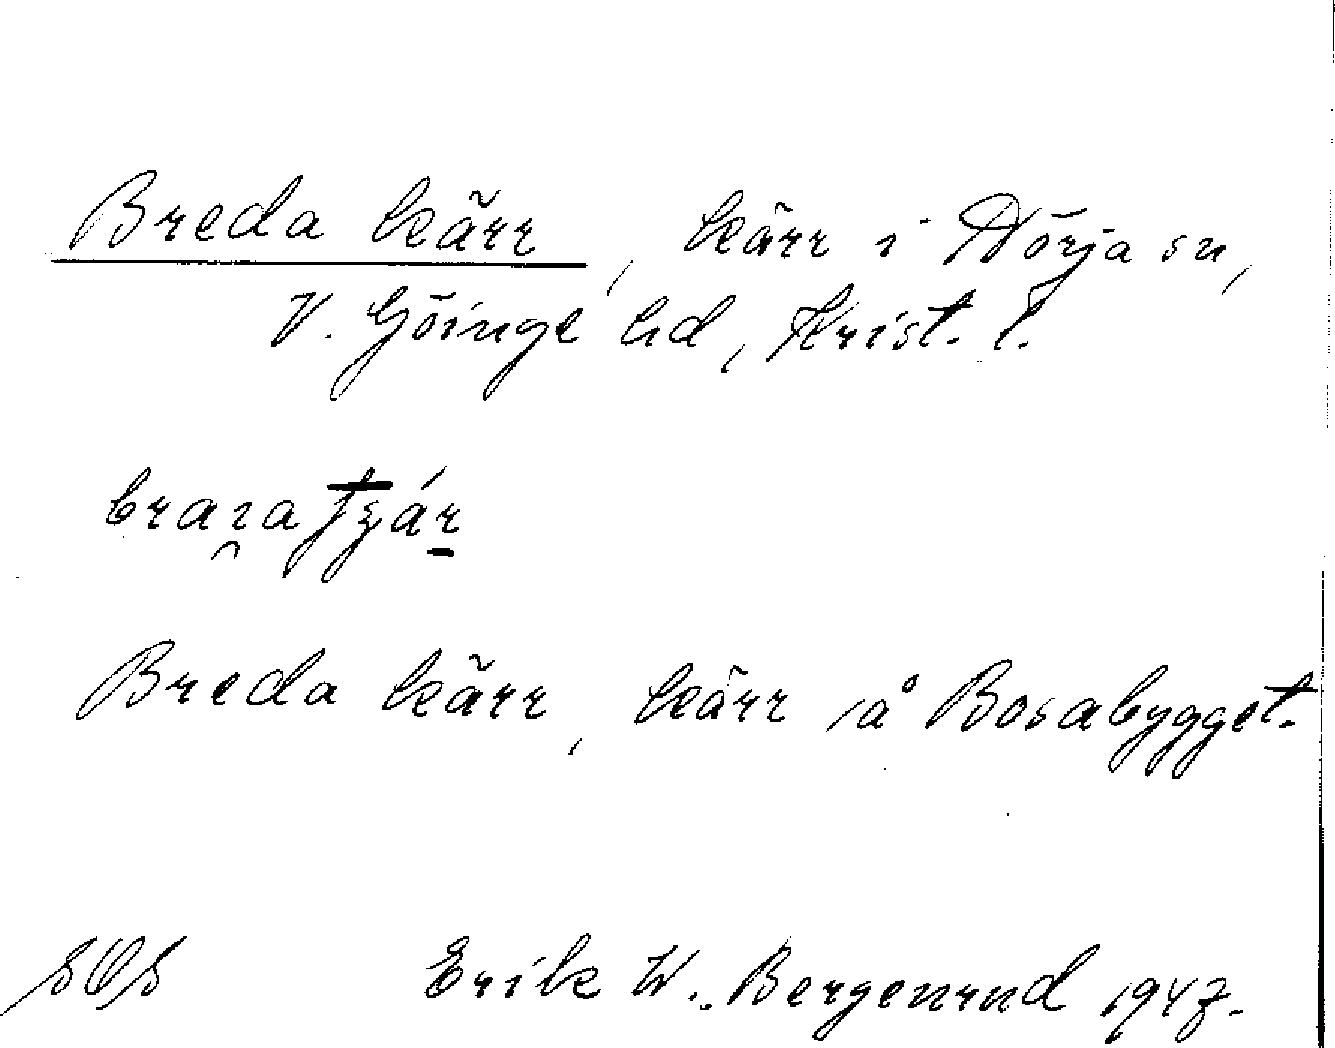 Breda kärr, kärr i Nörja sn,
V. Göinge hd, Krist. l.
Breda kärr, kärr å Bosabygget.
Erik W. Bergenrud 1947.